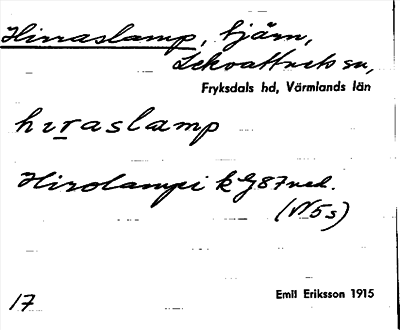 Hirraslamp, tjärn,
Lekvattnets sn,
Fryksdals hd, Värmlands län
hıraslamp
Hirolampi k G87 ned.
(N5s)
17
Emil Eriksson 1915